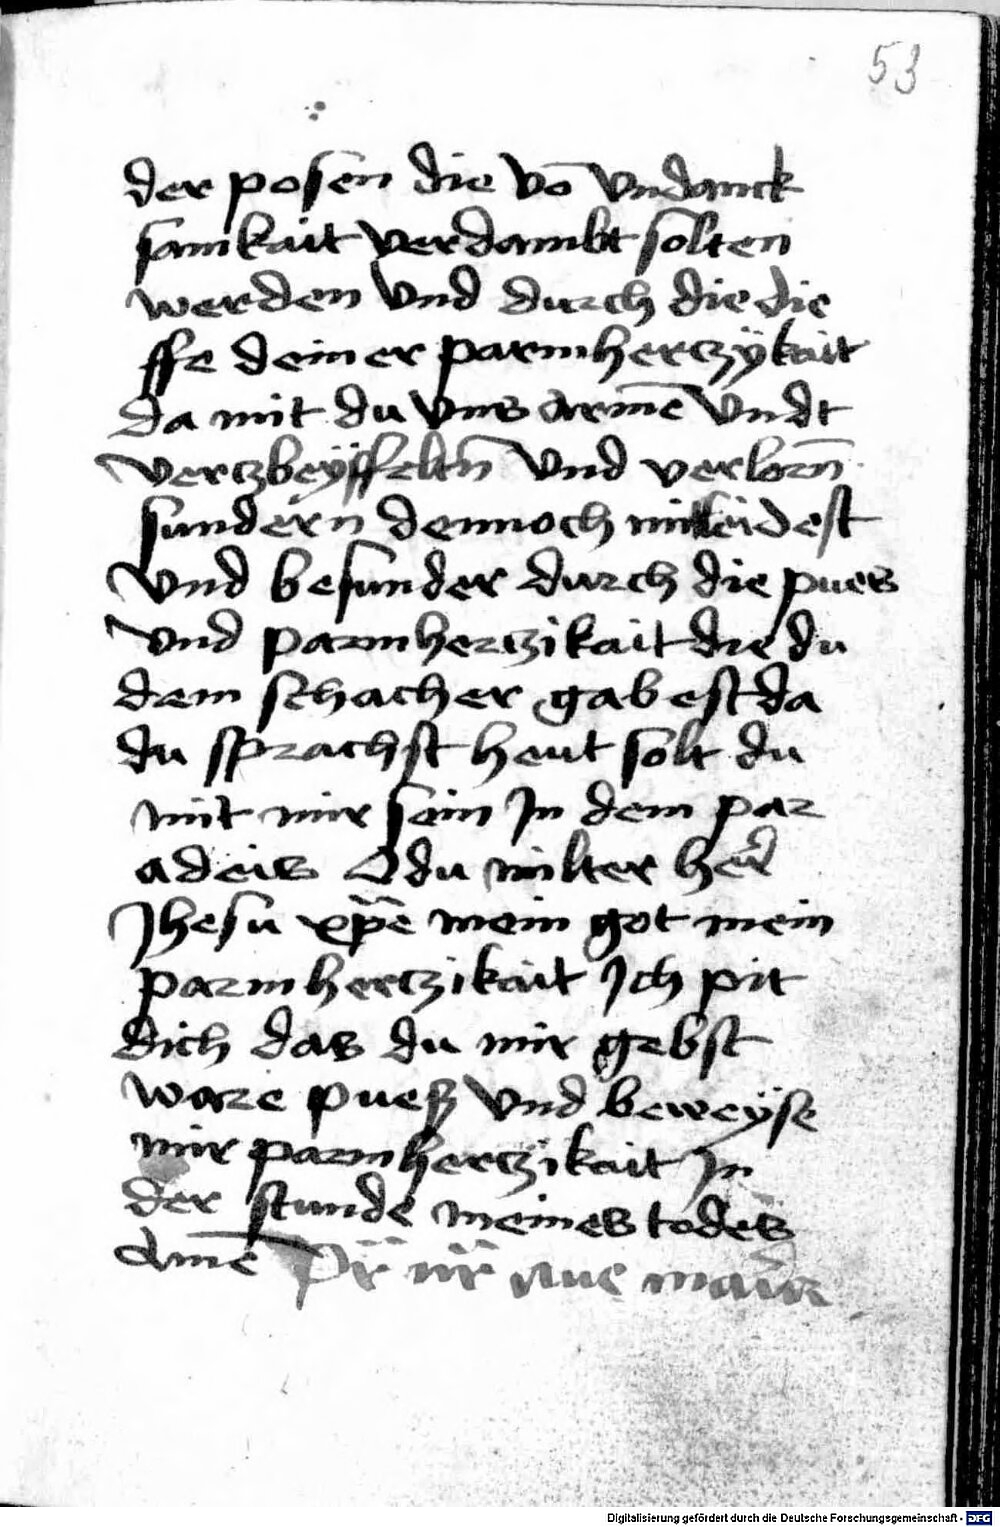 53
der posen die vō vndanck
samkait verdambt solten
werden vnd durch die die
ffe deiner parmherczÿkait
da mit du vns armē vndt
verczbeÿffeltn̄ vnd verlorn̄
sundern dennoch mitleidest
vnd besunder durch die pues
vnd parmherczikait die du
dem schacher gabest da
du sprachst heut solt du
mit mir sein Jn dem par
adeis O du milter her
Jhesu xp̄e mein got mein
parmherczikait Jch pit
dich das du mir gebst
ware puesz vnd beweÿse
mir parmherczikait Jn
der stunde meines todes
Amē Pr̄ nr̄ Aue maria
Digitalisierung gefördert durch die Deutsche Forschungsgemeinschaft - DFG